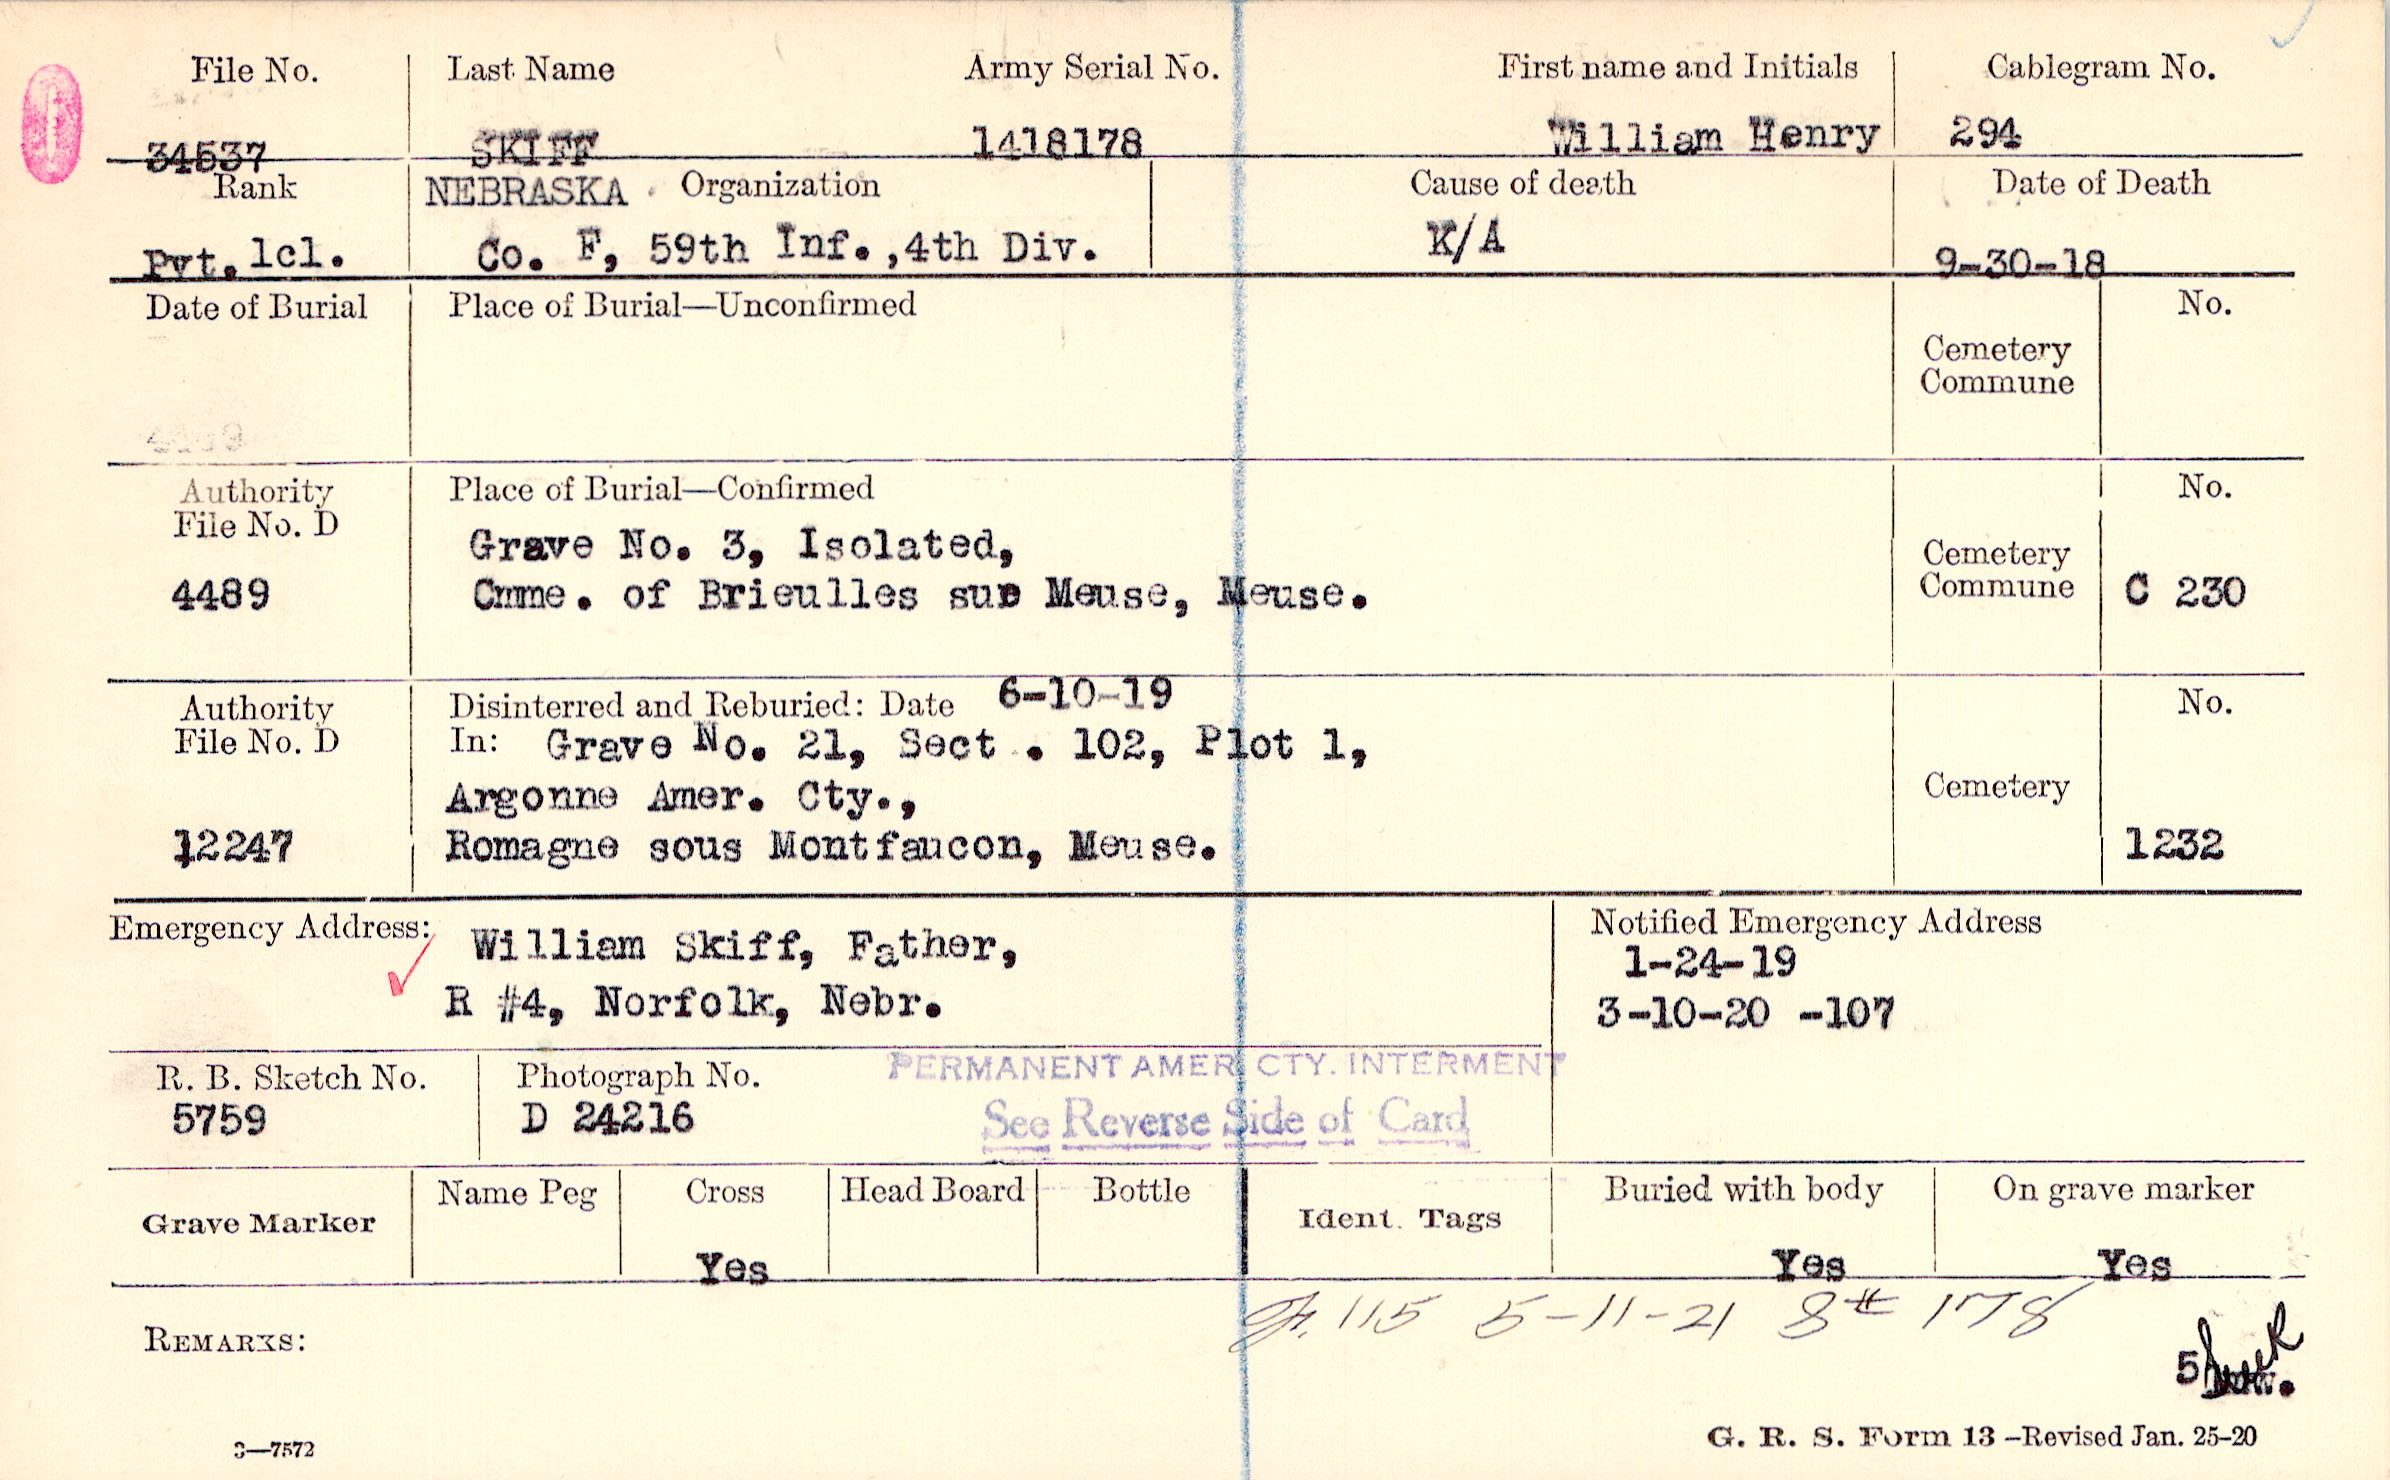 File No. Last Name Army Serial No. First name and Initials Cablegram No.
34537 SKIFF 1418178 William Henry 294
Rank NEBRASKA Organization Cause of death Date of Death
Pvt. 1cl. Co. F, 59th Inf.,4th Div. K/A 9-30-18
Date of Burial Place of Burial—Unconfirmed No.
Cemetery
Commune
Authority Place of Burial—Confirmed No.
File No. D
Grave No. 3, Isolated, Cemetery
4489 Cmme. of Brieulles sur Meuse, Meuse. Commune C 230
Authority Disinterred and Reburied: Date 6-10-19 No.
File No. D In: Grave No. 21, Sect . 102, Plot 1,
Argonne Amer. Cty., Cemetery
12247 Romagne sous Montfaucon, Meuse. 1232
Emergency Address: William Skiff, Father, Notified Emergency Address
1-24-19
R #4, Norfolk, Nebr. 3-10-20 -107
PERMANENT AMER. CTY. INTERMENT
R. B. Sketch No. Photograph No.
5759 D 24216 See Reverse Side of Card
Grave Marker Name Peg Cross Head Board Bottle Ident. Tags Buried with body On grave marker
Yes Yes Yes
115 5-11-21 8# 178
REMARKS:
5
3—7572 G. R. S. Form 13 —Revised Jan. 25-20